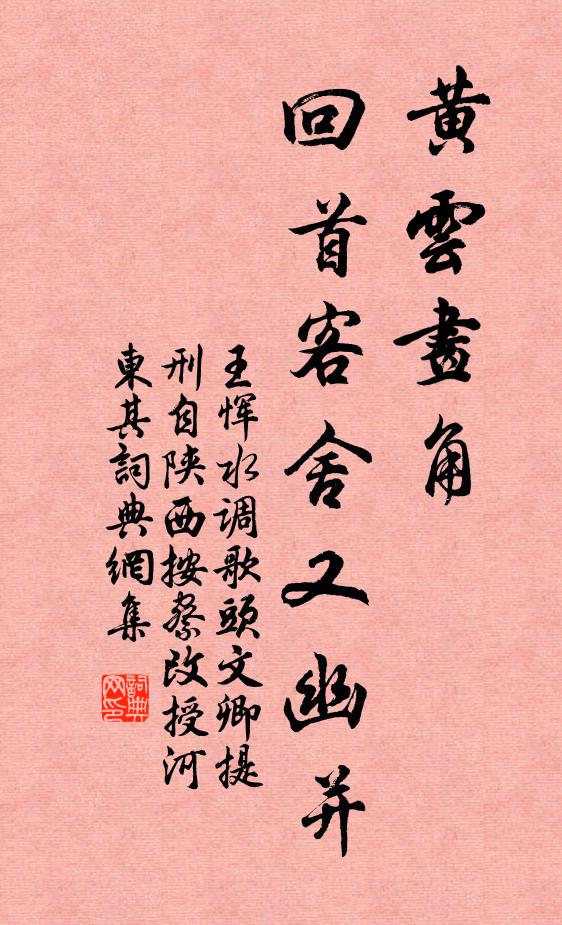 黄雲畫角
回首客舍又幽并
王恽水调歌頭文卿提
刑自陕西按察改授河
東其詞典網集
詞典网印